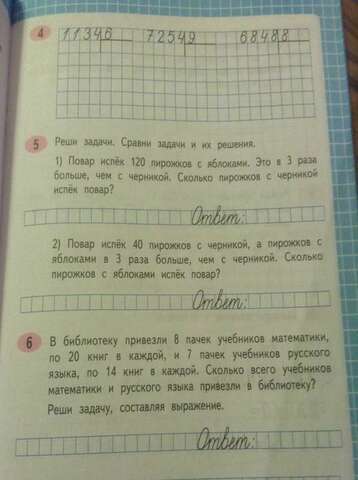 4 11346 72549 68488
5 Реши задачи. Сравни задачи и их решения.
1) Повар испёк 120 пирожков с яблоками. Это в 3 раза
больше, чем с черникой. Сколько пирожков с черникой
испёк повар?
Ответ:
2) Повар испёк 40 пирожков с черникой, а пирожков с
яблоками в 3 раза больше, чем с черникой. Сколько
пирожков с яблоками испёк повар?
Ответ:
6 В библиотеку привезли 8 пачек учебников математики,
по 20 книг в каждой, и 7 пачек учебников русского
языка, по 14 книг в каждой. Сколько всего учебников
математики и русского языка привезли в библиотеку?
Реши задачу, составляя выражение.
Ответ: